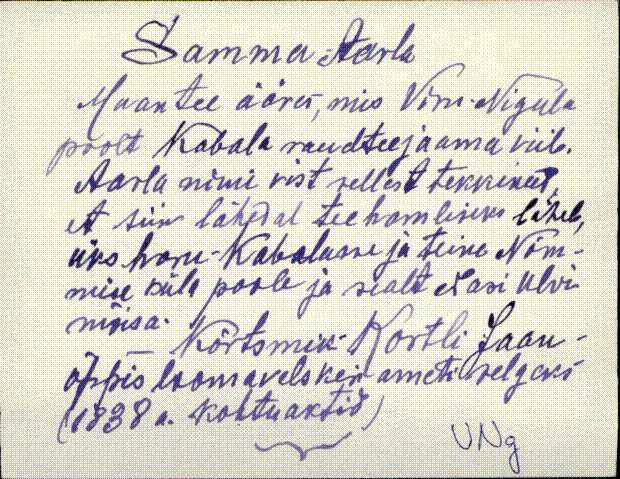 Samma-Aarla
Maantee ääres, mis Viru-Nigula
poolt Kabala raudteejaama viib.
Aarla nimi vist sellest tekkinud,
et siin lähedal tee haruliseks läheb,
üks haru-Kabalasse ja teine Nõm-
mise küla poole ja sealt edasi Ulvi
mõisa.
— Kõrtsmik Kortli Jaan -
õppis loomavelskeri ameti selgeks
(1838 a. kohtuaktid)
VNg